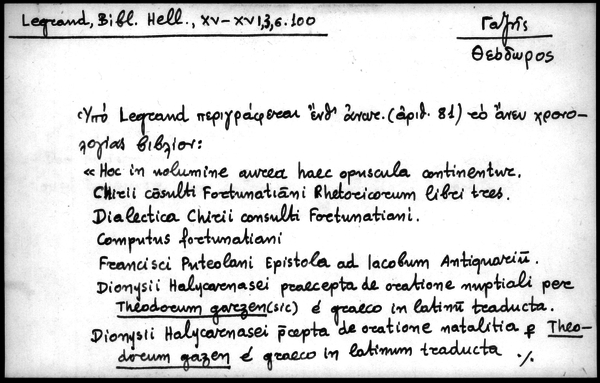 Legrand, Bibl. Hell., XV–XVI,3,σ.100
Γαζῆς
Θεόδωρος
Ὑπό Legrand περιγράφεται ἔνθ' ἀνωτ. (ἀριθ. 81) τό ἄνευ χρονο-
λογίας βιβλίον:
« Hoc in uolumine aurea haec opuscula continentur.
Chirii cōsulti Fortunatiāni Rhetoricorum libri tres.
Dialectica Chirii consulti Fortunatiani.
Computus fortunatiani
Francisci Puteolani Epistola ad Iacobum Antiquariū.
Dionysii Halycarnasei praecepta de oratione nuptiali per
Theodorum garzen(sic) é graeco in latinū traducta.
Dionysii Halycarnasei p̄cepta de oratione natalitia ꝑ Theo-
dorum gazen é graeco in latinum traducta ./.